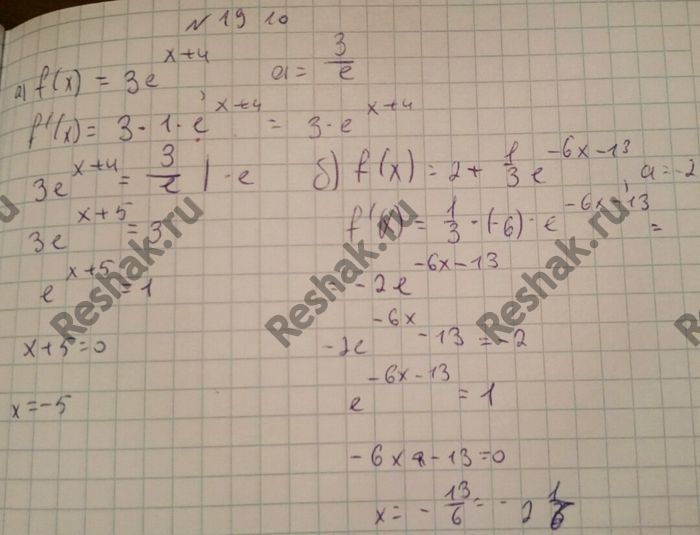 № 19 10
а) f(x) = 3e^(x+4)   a = 3/e
f'(x) = 3·1·e^(x+4) = 3·e^(x+4)
3e^(x+4) = 3/e | ·e
3e^(x+5) = 3
e^(x+5) = 1
x+5=0
x=-5
б) f(x) = 2+ 1/3 e^(-6x-13)   a=-2
f'(x) = 1/3 ·(-6)·e^(-6x-13) =
- -2e^(-6x-13)
-2e^(-6x-13) =-2
e^(-6x-13) = 1
-6x-13=0
x= - 13/6 = - 2 1/6
Reshak.ru
Reshak.ru
Reshak.ru
Reshak.ru
Reshak.ru